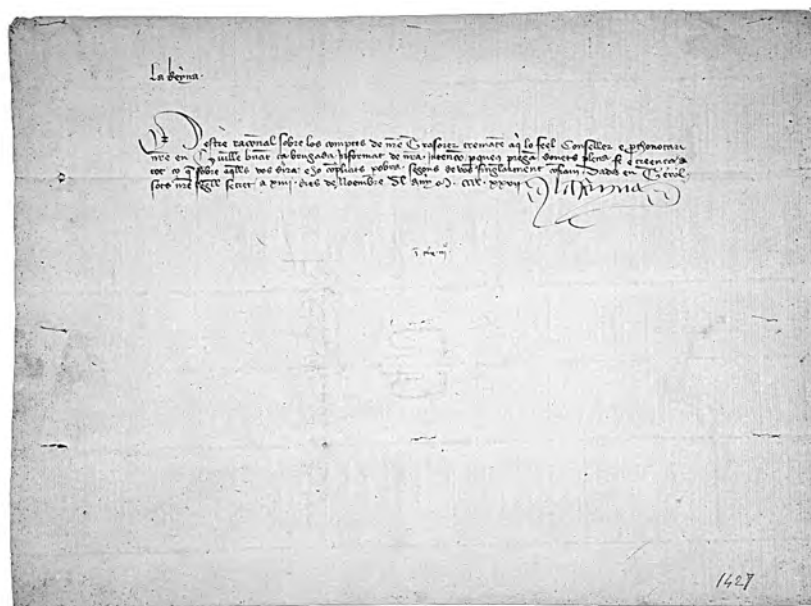 La Reyna.
Mestre racional sobre los comptes de nre Tresorer trematem aqi lo feel Conseller e prothonotari
nre en G. informat de nra intencio pq us pregam donets plena fe e creença a
tot ço q sobre aqlles vos dira e ço compliats segons de vos singularment confiam. Dada en
sots nre segell secret a xiiii dies de Noembre del any M. CCCC. XXVII
La Reyna
1427